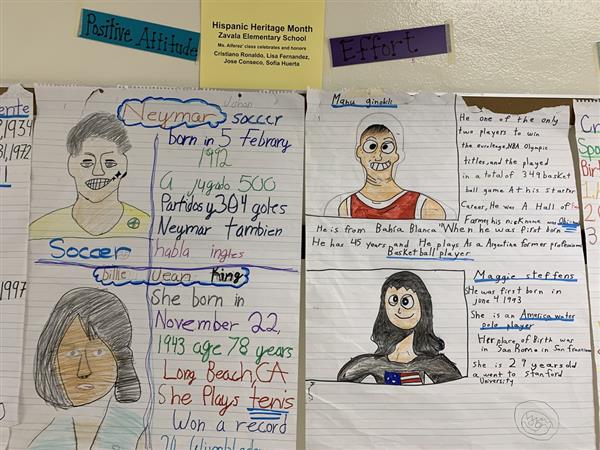 Positive Attitude
Hispanic Heritage Month
Zavala Elementary School
Ms. Alferez' class celebrates and honors
Cristiano Ronaldo, Lisa Fernandez,
Jose Conseco, Sofia Huerta
Effort
ente
1934
31,1972
1997
Neymar
soccer
born in 5 Febrary
1992
a jugado 500
Partidos y 304 goles
Neymar tambien
habla ingles
Soccer
Billie Jean King
She born in
November 22,
1943 age 78 years
Long Beach, CA
She Plays tenis
Won a record
20 Wimbledon
Manu ginobili
He one of the only
two players to win
the euroleage, NBA Olympic
titles, and the played
in a total of 349 basket
ball game At his starter
Career, He was A Hall of
Famer, his nickname was
He is from Bahia Blanca "When he was first born
He has 45 years and He plays As a Argentine former profession
Basketball player
Maggie steffens
She was first born in
june 4 1993
She is an America water
polo player
Her place of Birth was
in San Ramo in San francisco
She is 29 years old
a went to Stanford
University
Cr
Spo
Bir